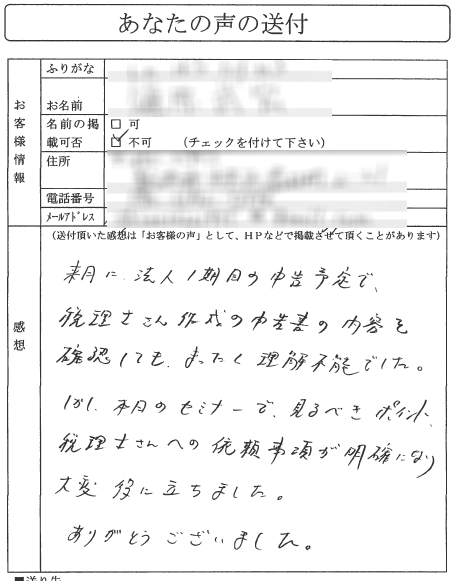 あなたの声の送付
お客様情報
ふりがな
お名前
名前の掲載可否
□ 可
☑ 不可 (チェックを付けて下さい)
住所
電話番号
ﾒｰﾙｱﾄﾞﾚｽ
感想
(送付頂いた感想は「お客様の声」として、HPなどで掲載させて頂くことがあります)
来月に、法人1期目の申告予定で、
税理士さん作成の申告書の内容を
確認しても、まったく理解不能でした。
しかし、本日のセミナーで、見るべきポイント、
税理士さんへの依頼事項が明確になり
大変役に立ちました。
ありがとうございました。
■送り先